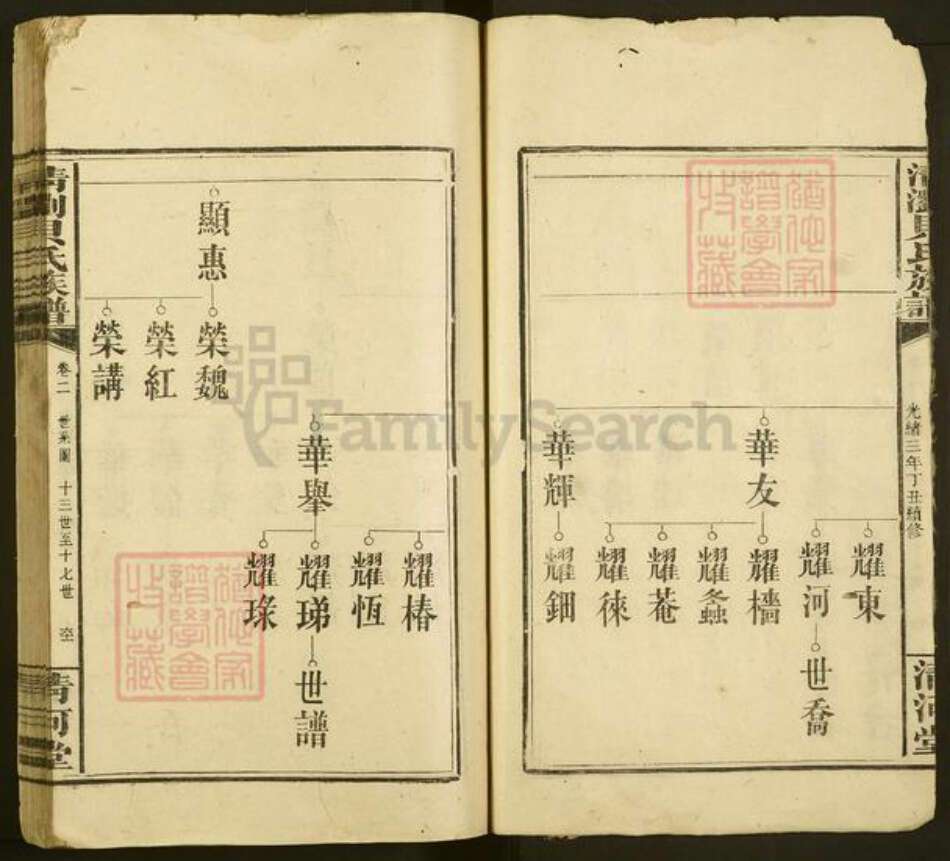 光緒三年丁丑續修
清河堂
華友
華輝
耀東
耀河
耀檣
耀螽
耀菴
耀徠
耀鈿
世喬
顯惠
榮魏
榮紅
榮講
華舉
耀椿
耀恆
耀珶
耀琭
世譜
貝氏族譜
卷二
世系圖
十三世至十七世
清河堂
猶他家譜學會收藏
猶他家譜學會收藏
FamilySearch